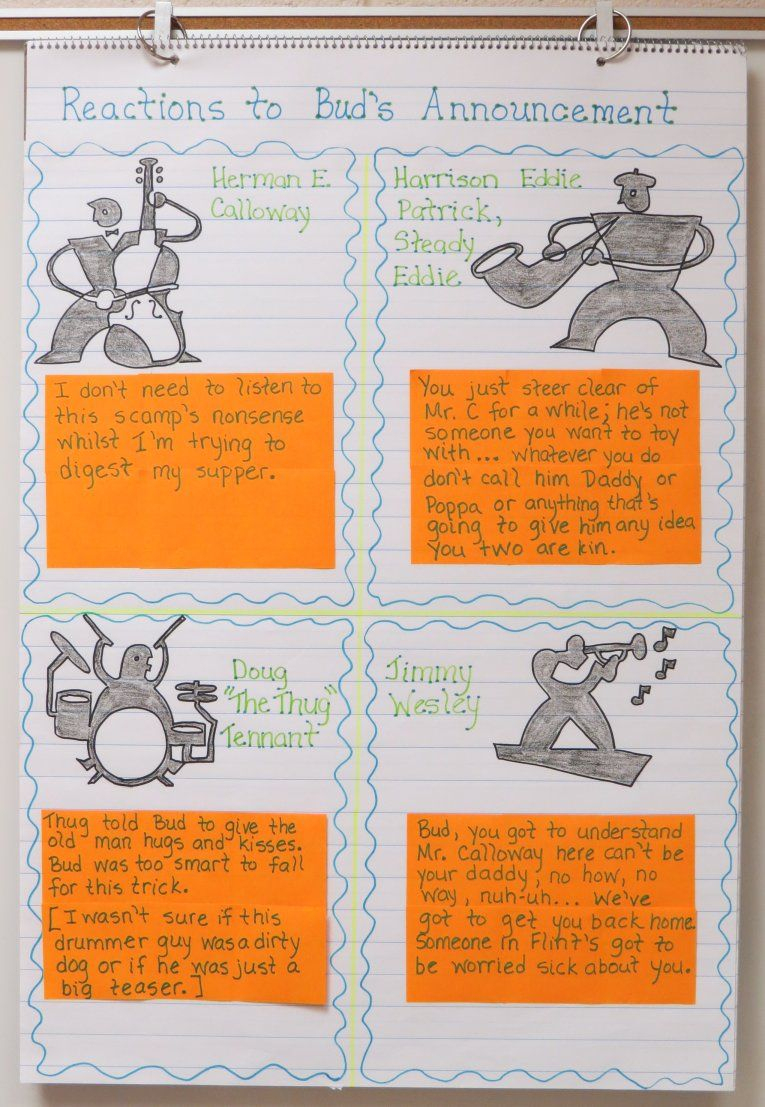 Reactions to Bud's Announcement
Herman E.
Calloway
I don't need to listen to
this scamp's nonsense
whilst I'm trying to
digest my supper.
Harrison Eddie
Patrick,
Steady
Eddie
You just steer clear of
Mr. C for a while; he's not
someone you want to toy
with... whatever you do
don't call him Daddy or
Poppa or anything that's
going to give him any idea
you two are kin.
Doug
"The Thug"
Tennant
Thug told Bud to give the
old man hugs and kisses.
Bud was too smart to fall
for this trick.
[I wasn't sure if this
drummer guy was a dirty
dog or if he was just a
big teaser.]
Jimmy
Wesley
Bud, you got to understand
Mr. Calloway here can't be
your daddy, no how, no
way, nuh-uh... We've
got to get you back home.
Someone in Flint's got to
be worried sick about you.